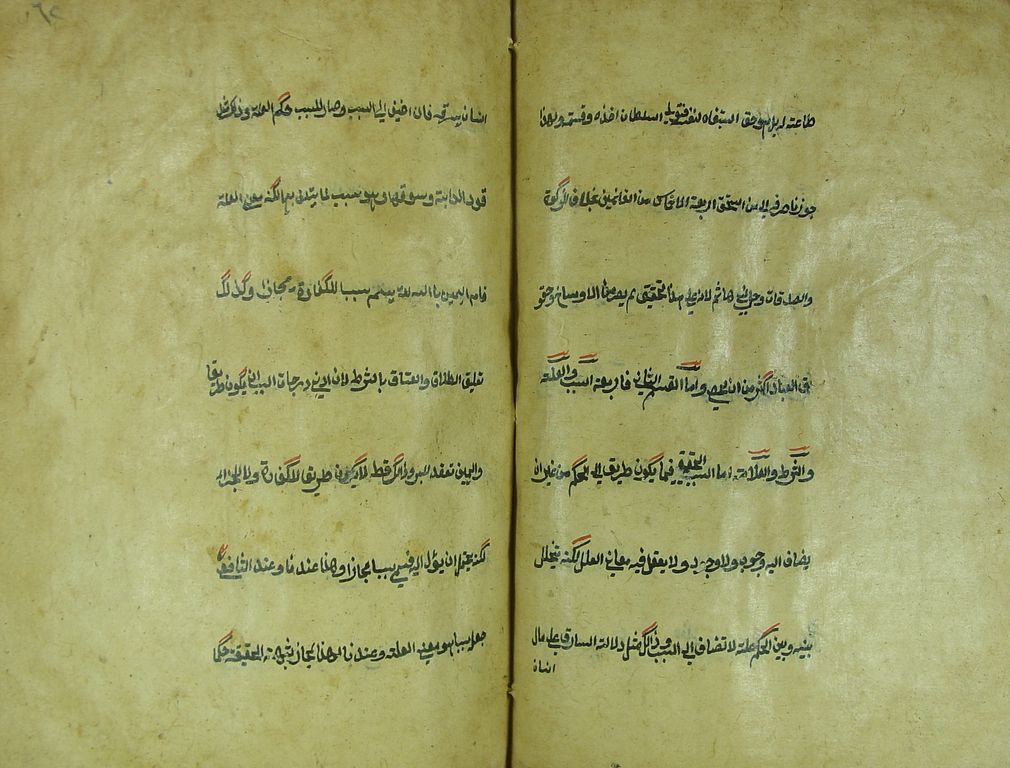 طاعة له بل هو حق استبقاه لنفسه فتولى السلطان اخذه وقسمته ولهذا
جوزنا صرفه الى من استحق اربعة الاخماس من الغانمين بخلاف الزكوة
والصدقات وحل لبني هاشم لانه على هذا التحقيق لم يصر من الاوساخ وحقوق
العباد اكثر من ان يحصى واما القسم الثاني فاربعة السبب والعلة
والشرط والعلامة اما السبب الحقيقي فما يكون طريقا الى الحكم من غير ان
يضاف اليه وجوب ولا وجود ولا يعقل فيه معاني العلل لكنه يتخلل
بينه وبين الحكم علة لا تضاف الى السبب وذلك مثل دلالة السارق على مال
انسان
انسان ليسرقه فان اضيف الى السبب وصار للسبب حكم العلة وذلك مثل
قود الدابة وسوقها وهو سبب لما يتلف بها لكنه معنى العلة
فاما اليمين بالله تعالى يسمى سببا للكفارة مجازا وكذلك
تعليق الطلاق والعتاق بالشرط لان ادنى درجات السبب ان يكون طريقا
واليمين تعقد للبر وذلك قط لا يكون طريقا للكفارة ولا للجزاء
لكنه يحتمل ان يؤل اليه فسمي سببا مجازا وهذا عندنا وعند الشافعي
جعل سببا هو بمعنى العلة وعندنا لهذا المجاز شبهة الحقيقة حكما
٦٢